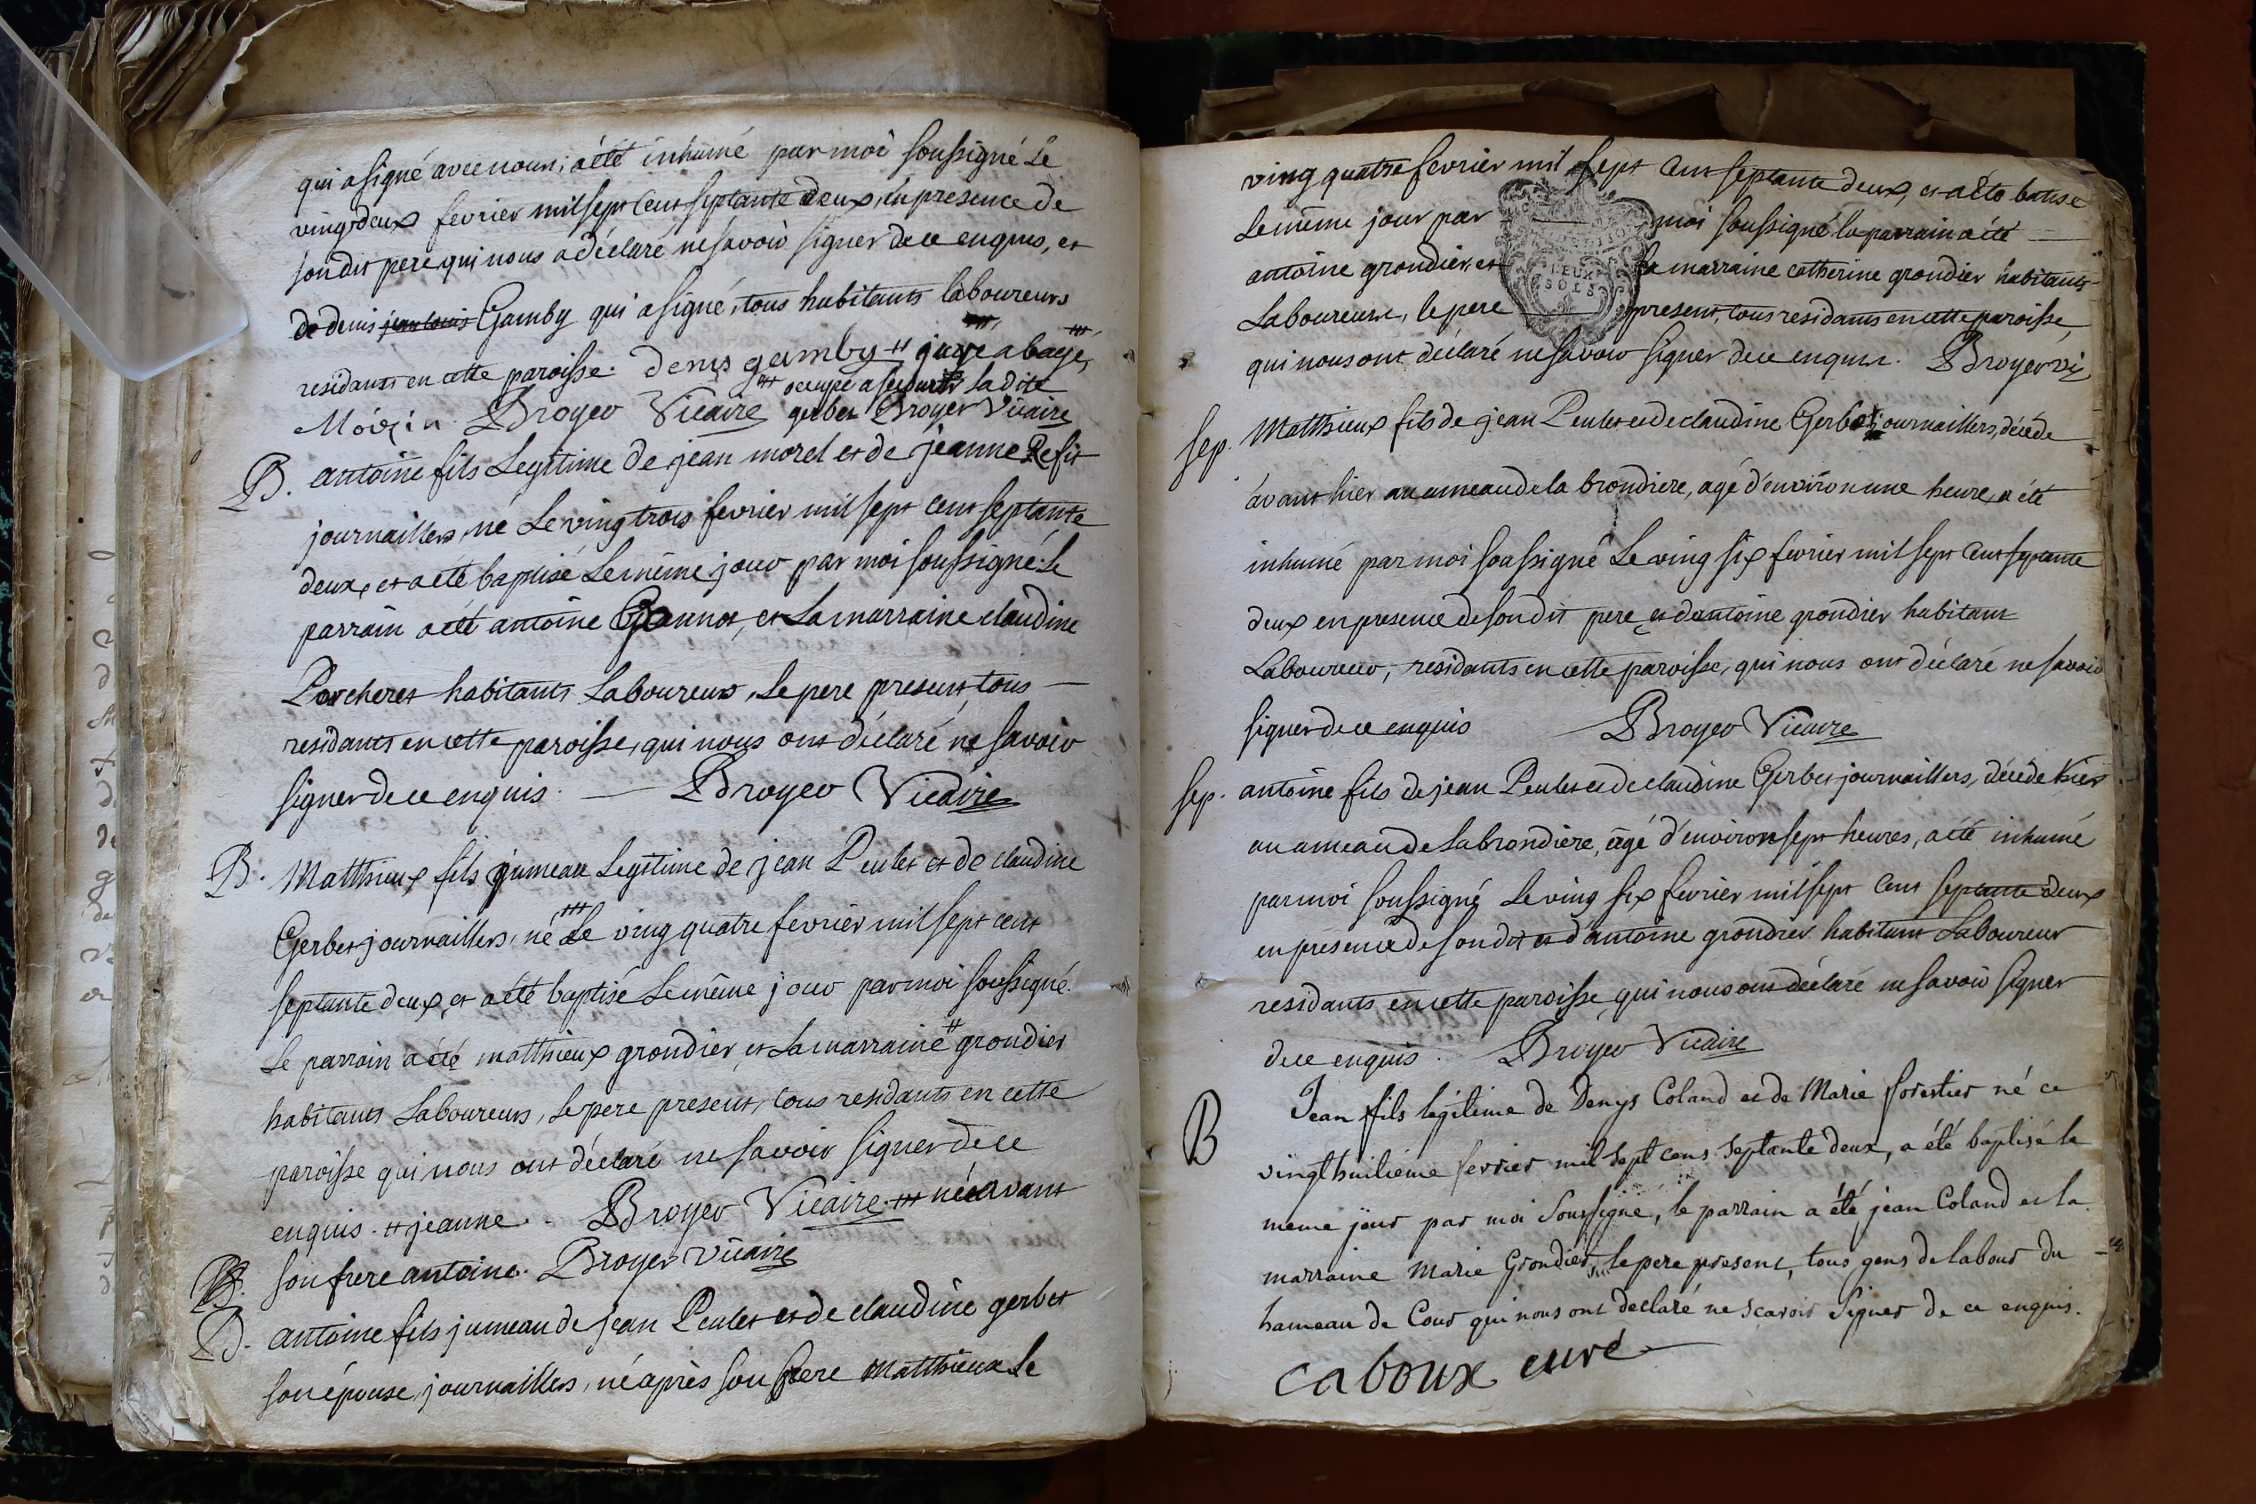 qui a signé avec nous, a été inhumé par moi soussigné le
vingdeux fevrier mil sept cent septante deux, en presence de
son dit pere, qui nous a déclaré ne savoir signer de ce enquis, et
de denis jean louis Gamby qui a signé, tous habitants laboureurs
residants en cette paroisse. denis gamby
occupé a secourir ladite
Moizin Broyer Vicaire gerbet Broyer Vicaire
B. antoine fils Legitime de jean morel et de jeanne Refit
journailliers, né Le ving trois fevrier mil sept cent septante
deux, et a été baptisé Le même jour par moi soussigné. Le
parrain a été antoine et La marraine claudine
Porcheret habitants Laboureurs, Le pere present, tous
residants en cette paroisse, qui nous ont déclaré ne savoir
signer de ce enquis. Broyer Vicaire
B. Matthieux fils jumeau Legitime de jean Peulet et de claudine
Gerbet journailliers, né Le ving quatre fevrier mil sept cent
septante deux, et a été baptisé Le même jour par moi soussigné.
Le parrain a été matthieux grondier, et La marraine # grondier
habitants Laboureurs, Le pere present, tous residants en cette
paroisse qui nous ont déclaré ne savoir signer de ce
enquis. # jeanne. Broyer Vicaire né avant
son frere antoine. Broyer Vicaire
B. antoine fils jumeau de jean Peulet et de claudine gerbet
son épouse, journailliers, né après son frere Matthieux Le
ving quatre fevrier mil sept cent septante deux, et a été batisé
Le même jour par moi soussigné le parrain a été
antoine grondier, et la marraine catherine grondier habitants
Laboureurs, le pere present, tous residants en cette paroisse,
DEUX
SOLS
qui nous ont déclaré ne savoir signer de ce enquis. Broyer vi
sep. Matthieux fils de jean Peulet et de claudine Gerbet journailliers, décédé
avant hier au ameau de la brondiere, agé d'environ une heure, a été
inhumé par moi soussigné Le ving six fevrier mil sept cent septante
deux en presence de son dit pere et d'antoine grondier habitant
Laboureur, residants en cette paroisse, qui nous ont déclaré ne savoir
signer de ce enquis Broyer Vicaire
sep. antoine fils de jean Peulet et de claudine Gerbet journailliers, décédé hier
au ameau de La brondiere, agé d'environ sept heures, a été inhumé
par moi soussigné Le ving six fevrier mil sept cent septante deux
en présence de son dit et d'antoine grondier habitant Laboureur
residants en cette paroisse qui nous ont déclaré ne savoir signer
de ce enquis. Broyer Vicaire
B Jean fils légitime de Denys Coland et de Marie forestier né ce
vingt huitiéme fevrier mil sept cens septante deux, a été baptisé le
meme jour par moi Soussigné, le parrain a été jean Coland et la
marraine Marie Grondier, le pere present, tous gens de labour du
hameau de Cour qui nous ont declaré ne scavoir Signer de ce enquis.
caboux curé